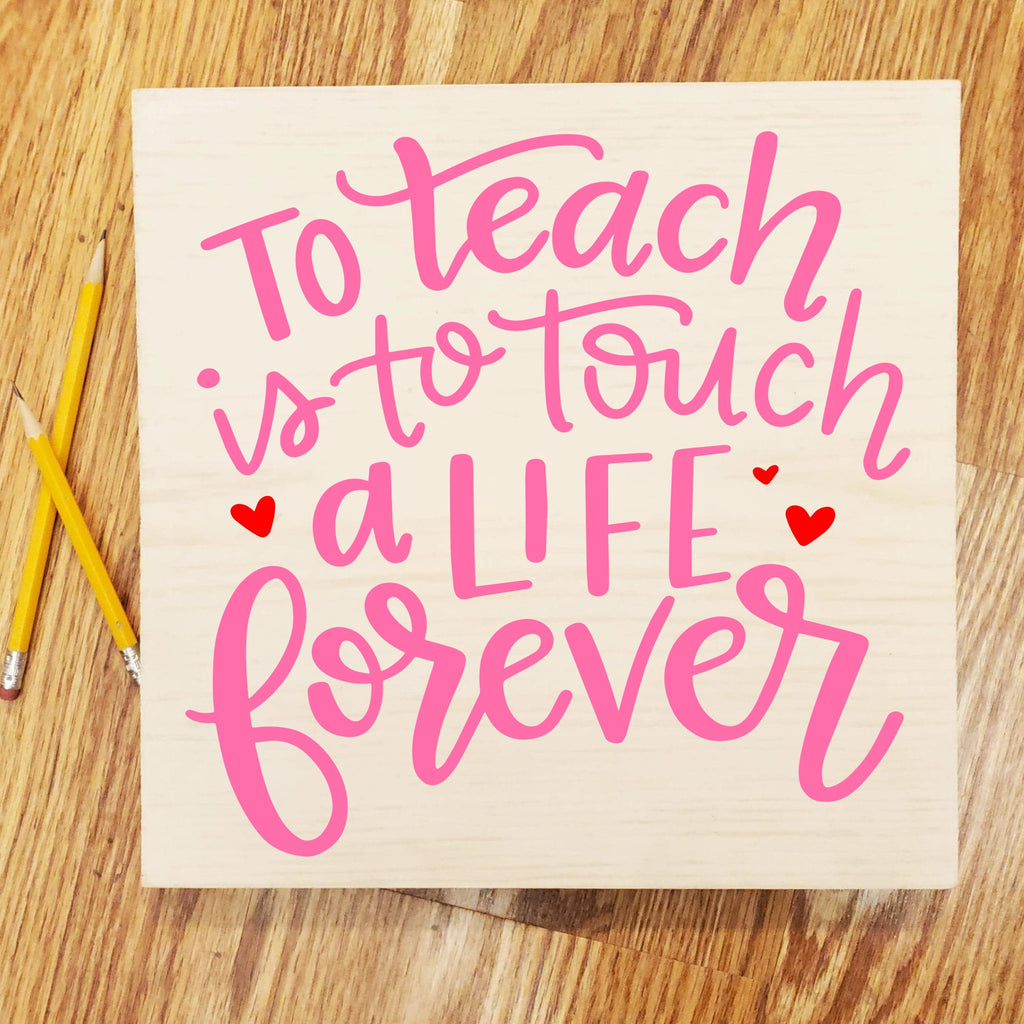 To teach
is to touch
a LIFE
forever